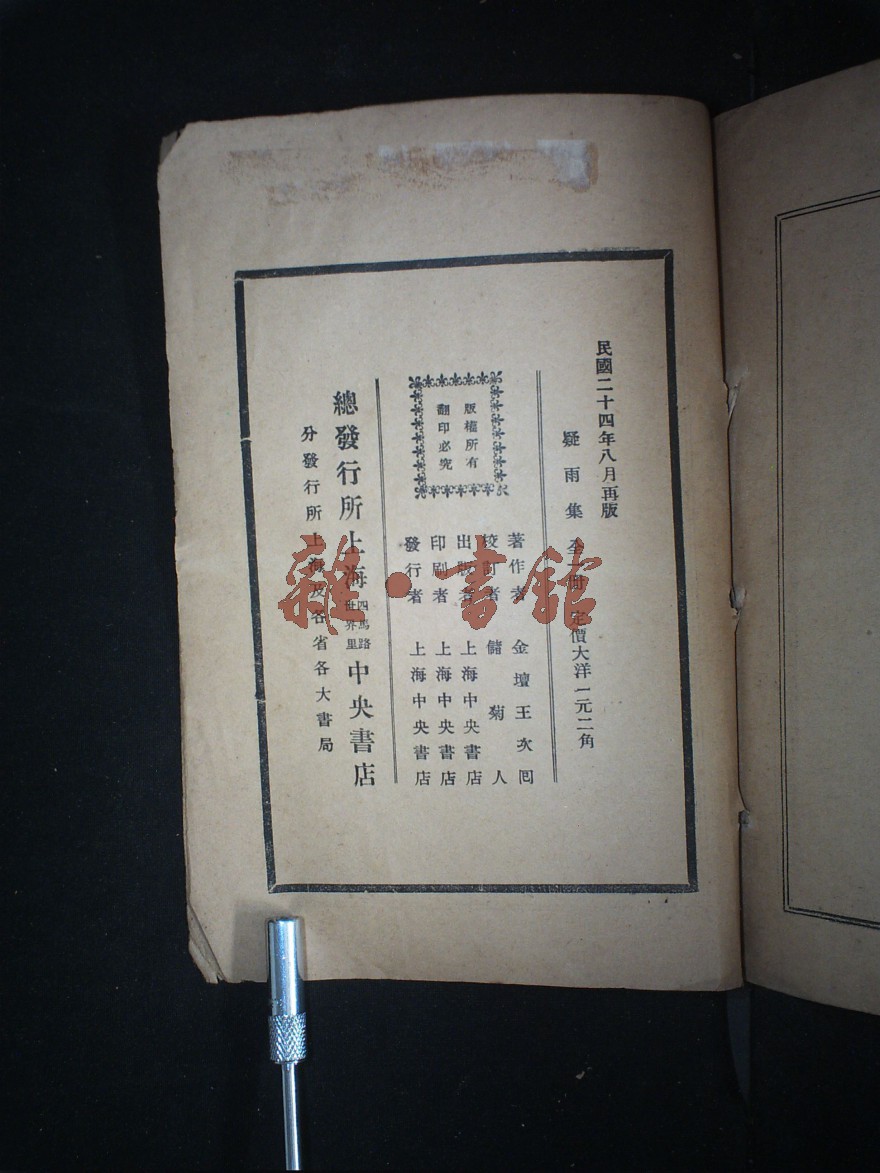 民國二十四年八月再版
疑雨集 全一册 定價大洋一元二角
版權所有
翻印必究
著作者 金壇王次囘
校訂者 儲菊人
出版者 上海中央書店
印刷者 上海中央書店
發行者 上海中央書店
總發行所 上海四馬路世界里 中央書店
分發行所 上海及各省各大書局
雜·書館